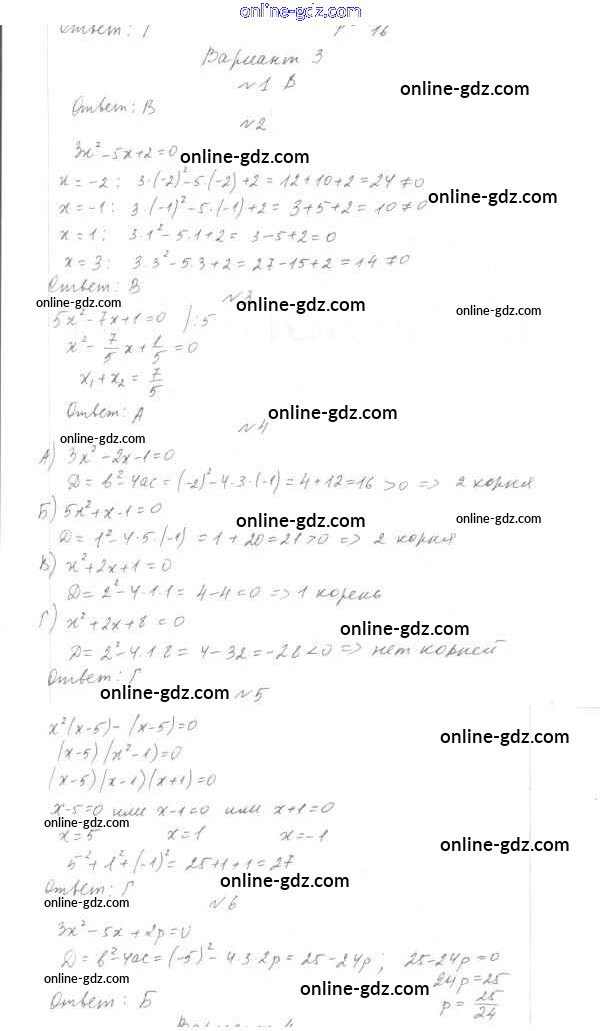 online-gdz.com
Ответ: Г p = 16
Вариант 3
№1 В
online-gdz.com
Ответ: В
№2
3x²-5x+2=0 online-gdz.com
x = -2; 3·(-2)²-5·(-2)+2=12+10+2=24≠0
x = -1: 3·(-1)²-5·(-1)+2= 3+5+2=10≠0 online-gdz.com
x = 1; 3·1²-5·1+2= 3-5+2=0
x = 3; 3·3²-5·3+2=27-15+2=14≠0
Ответ: В
online-gdz.com №3 online-gdz.com
5x²-7x+1=0 /:5 online-gdz.com
x²- 7/5 x+ 1/5 =0
x₁+x₂= 7/5
Ответ: А online-gdz.com
№4
online-gdz.com
А) 3x²-2x-1=0
Д= b²-4ac=(-2)²-4·3·(-1)=4+12=16>0 => 2 корня
Б) 5x²+x-1=0 online-gdz.com online-gdz.com
Д= 1²-4·5·(-1) =1+20=21>0 => 2 корня
В) x²+2x+1=0 online-gdz.com
Д= 2²-4·1·1= 4-4=0 => 1 корень
Г) x²+2x+8=0 online-gdz.com
Д=2²-4·1·8= 4-32=-28<0 => нет корней
Ответ: Г
online-gdz.com №5
x²(x-5)-(x-5)=0 online-gdz.com
(x-5)(x²-1)=0
(x-5)(x-1)(x+1)=0
x-5=0 или x-1=0 или x+1=0
online-gdz.com
x=5 x=1 x=-1 online-gdz.com
5²+1²+(-1)²= 25+1+1=27
online-gdz.com
Ответ: Г
online-gdz.com №6
3x²-5x+2p=0
Д= b²-4ac=(-5)²-4·3·2p=25-24p; 25-24p=0
online-gdz.com online-gdz.com 24p=25
Ответ: Б p= 25/24